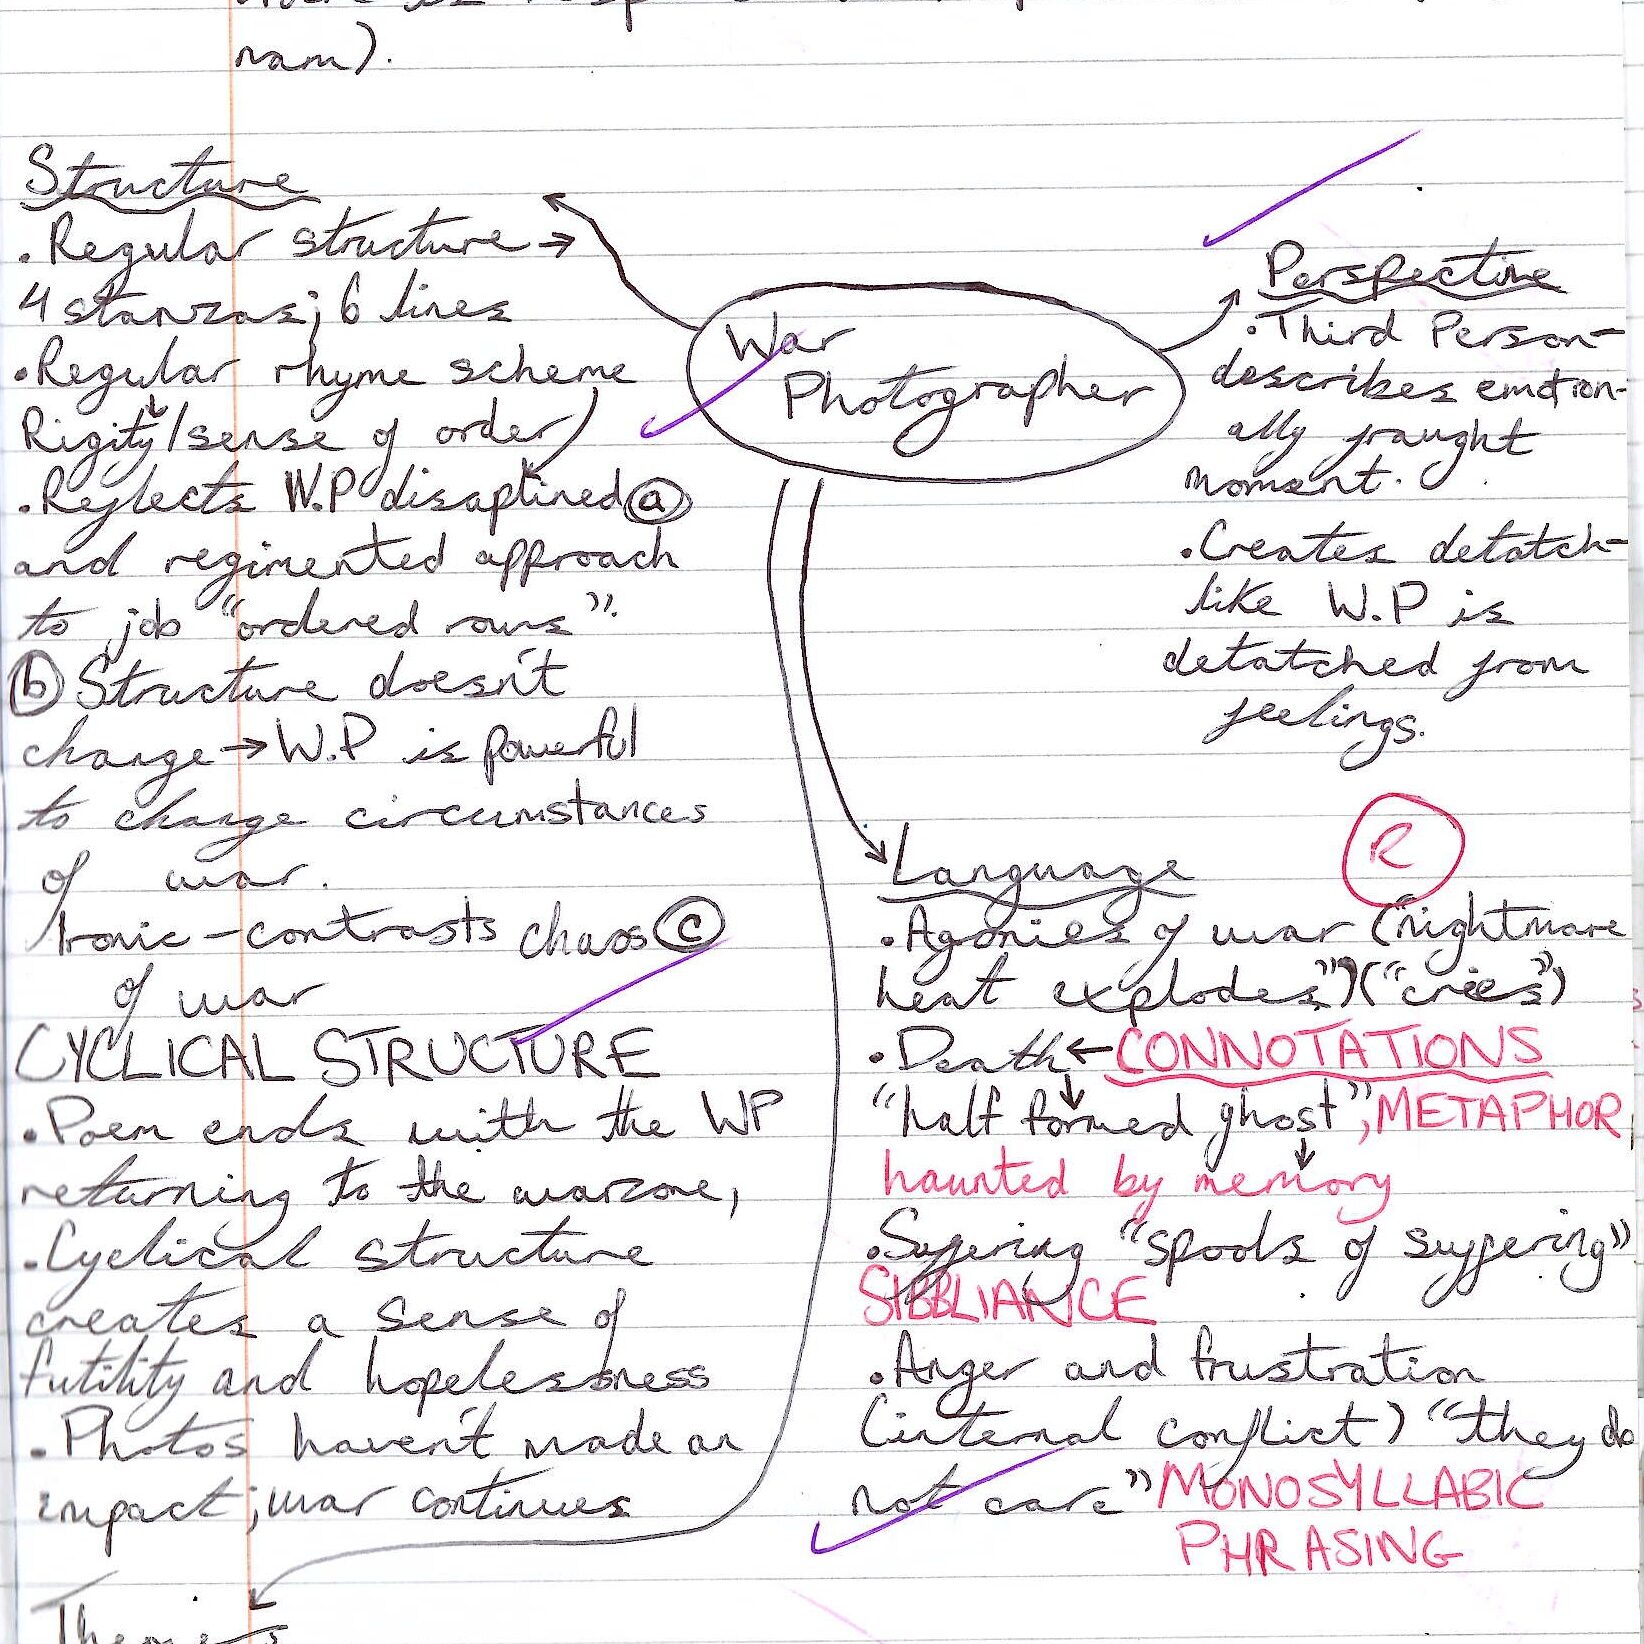 nam).
Structure
. Regular structure →
4 stanzas; 6 lines
. Regular rhyme scheme
Rigity/sense of order
. Reflects W.P disaplined ⓐ
and regimented approach
to job "ordered rows".
ⓑ Structure doesn't
change → W.P is powerful
to change circumstances
of war.
Ironic - contrasts chaos ⓒ
of war
CYCLICAL STRUCTURE
. Poem ends with the WP
returning to the warzone,
. Cyclical structure
creates a sense of
futility and hopelessness
. Photos haven't made an
impact; war continues
Themes
War
Photographer
Perspective
. Third Person-
describes emotion-
ally fraught
moment.
. Creates detatch-
like W.P is
detatched from
feelings.
R
Language
. Agonies of war ("nightmare
heat explodes") ("cries")
. Death ← CONNOTATIONS
"half formed ghost", METAPHOR
haunted by memory
. Suffering "spools of suffering"
SIBBLIANCE
. Anger and frustration
(internal conflict) "they do
not care" MONOSYLLABIC
PHRASING